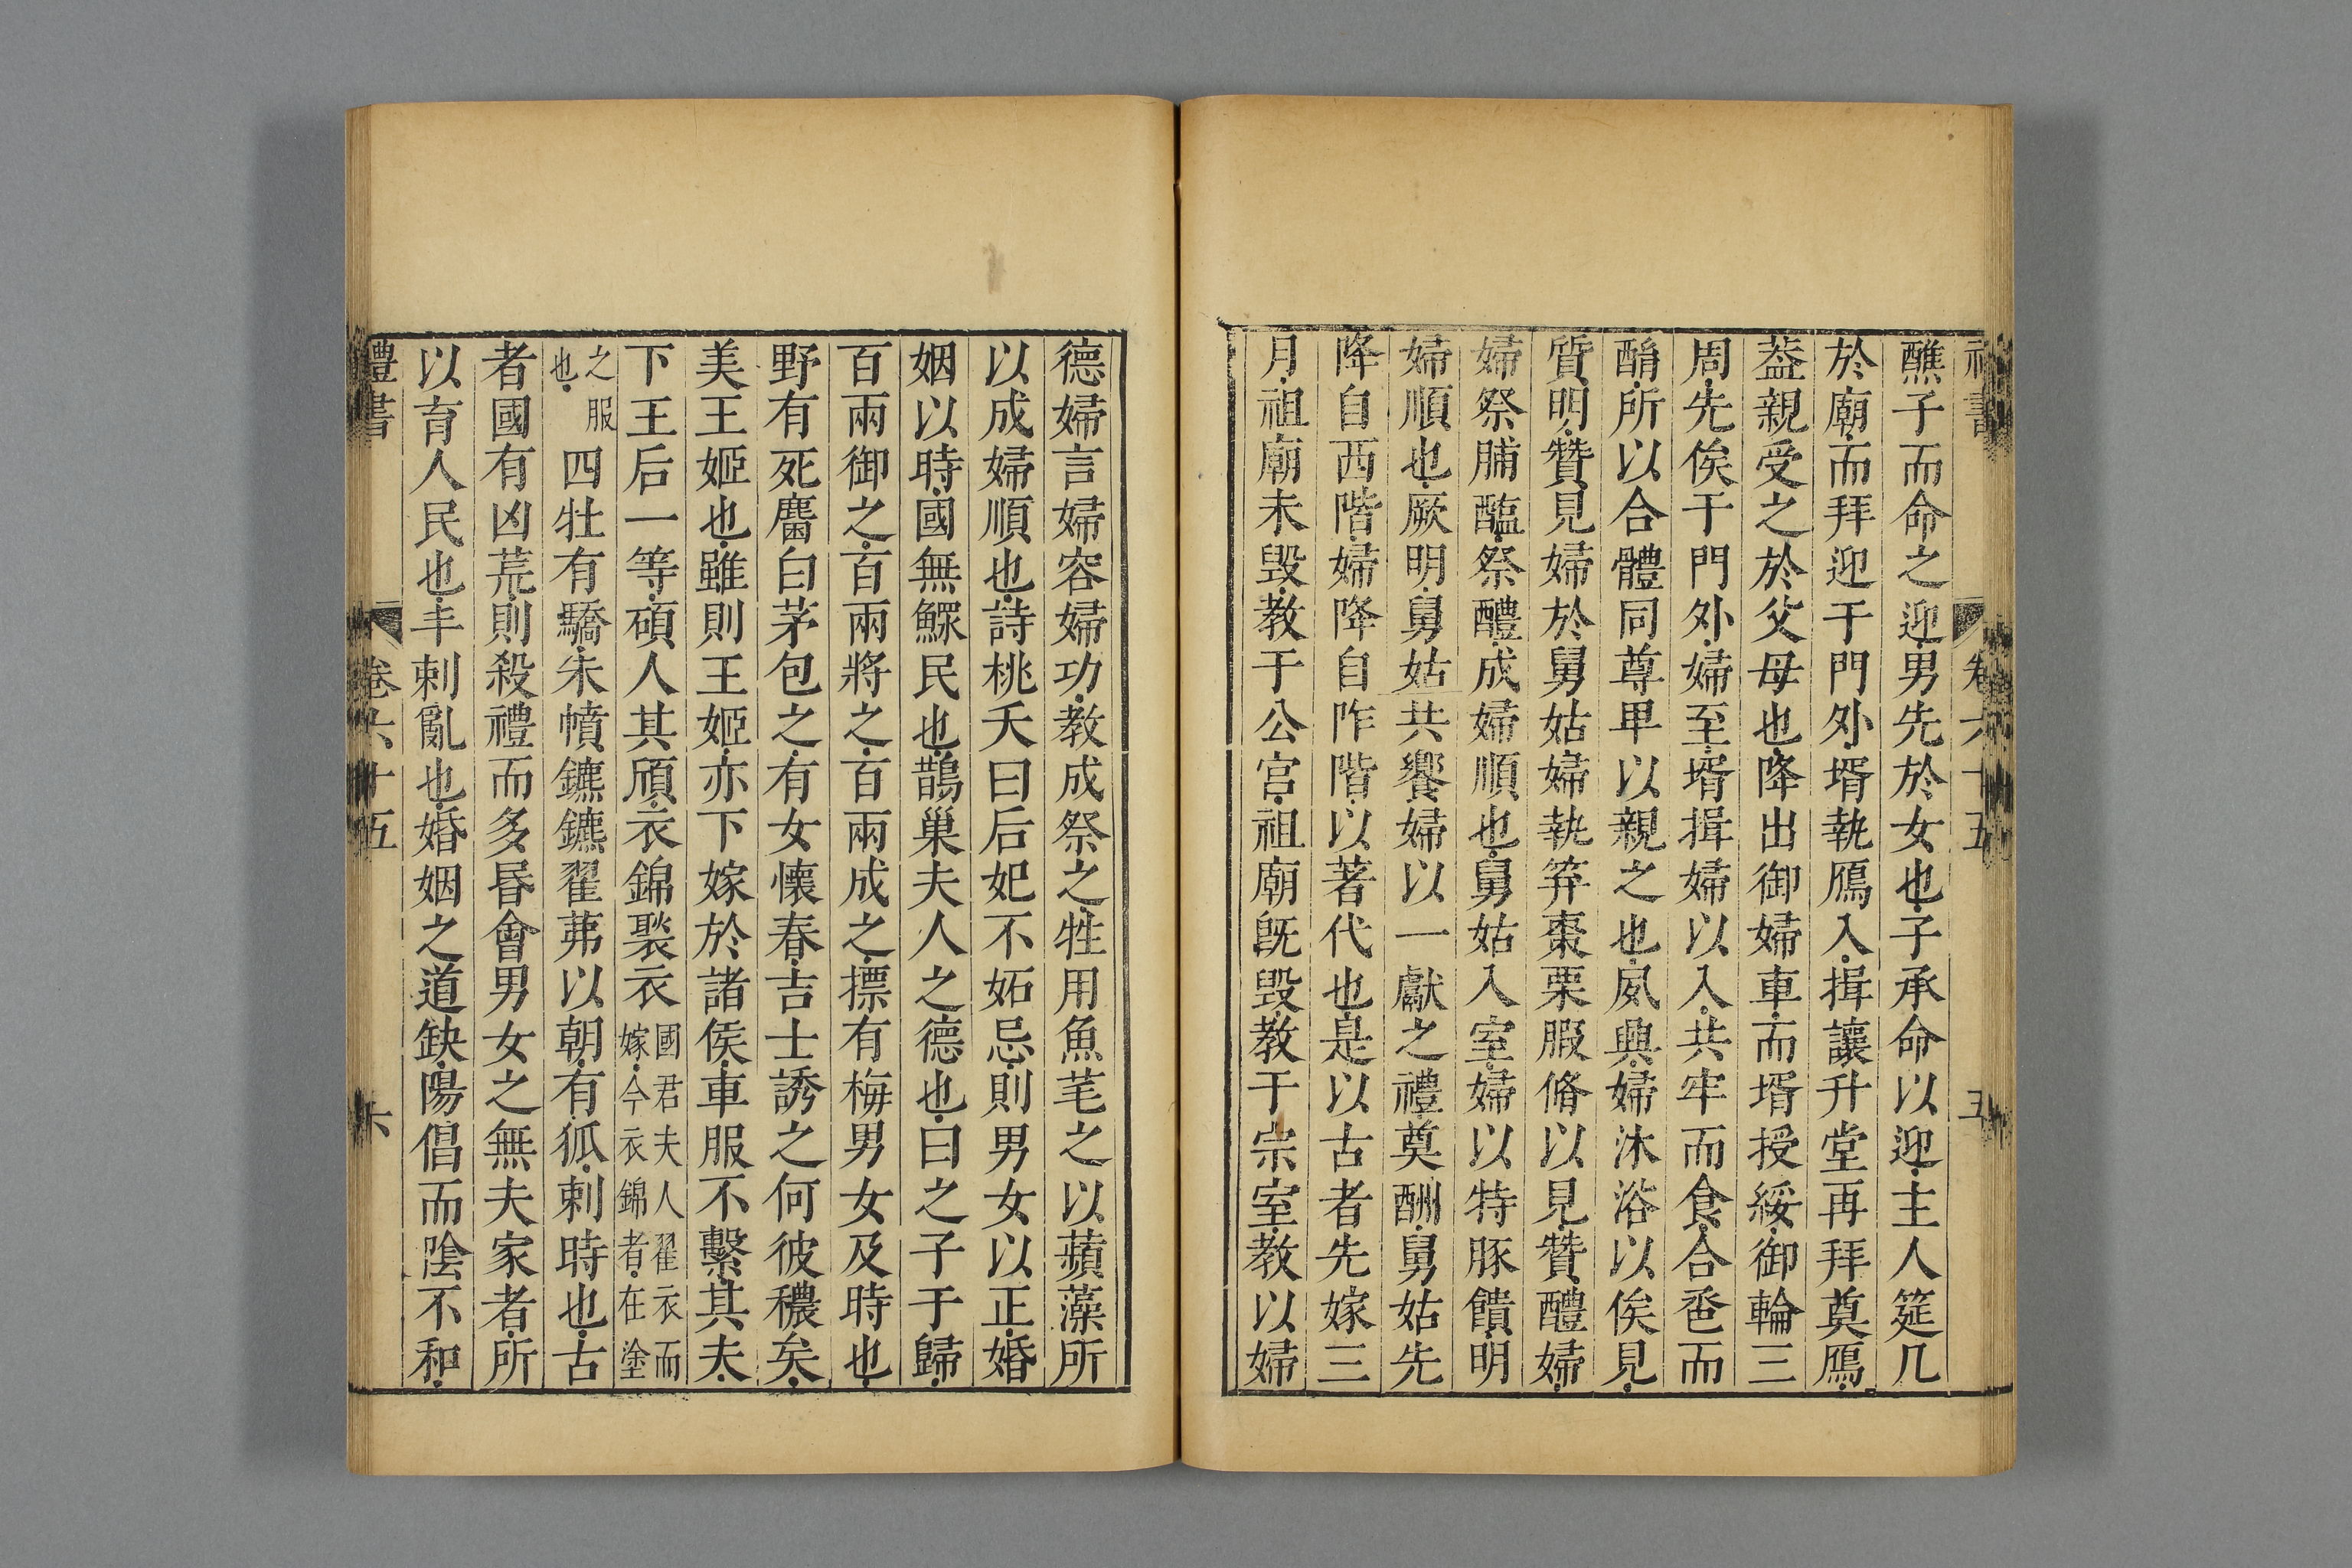 禮書 卷六十五 五
醮子而命之迎男先於女也子承命以迎主人筵几
於廟而拜迎于門外壻執鴈入揖讓升堂再拜奠鴈
葢親受之於父母也降出御婦車而壻授綏御輪三
周先俟于門外婦至壻揖婦以入共牢而食合巹而
酳所以合體同尊卑以親之也夙興婦沐浴以俟見
質明贊見婦於舅姑婦執笲棗栗服脩以見贊醴婦
婦祭脯醢祭醴成婦順也舅姑入室婦以特豚饋明
婦順也厥明舅姑共饗婦以一獻之禮奠酬舅姑先
降自西階婦降自阼階以著代也是以古者先嫁三
月祖廟未毀教于公宮祖廟旣毀教于宗室教以婦
德婦言婦容婦功教成祭之牲用魚芼之以蘋藻所
以成婦順也詩桃夭曰后妃不妬忌則男女以正婚
姻以時國無鰥民也鵲巢夫人之德也曰之子于歸
百兩御之百兩將之百兩成之摽有梅男女及時也
野有死麕白茅包之有女懷春吉士誘之何彼穠矣
美王姬也雖則王姬亦下嫁於諸侯車服不繫其夫
下王后一等碩人其頎衣錦褧衣國君夫人翟衣而嫁今衣錦者在塗
之服也四牡有驕朱幩鑣鑣翟茀以朝有狐刺時也古
者國有凶荒則殺禮而多昬會男女之無夫家者所
以育人民也丰刺亂也婚姻之道缺陽倡而陰不和
禮書 卷六十五 六